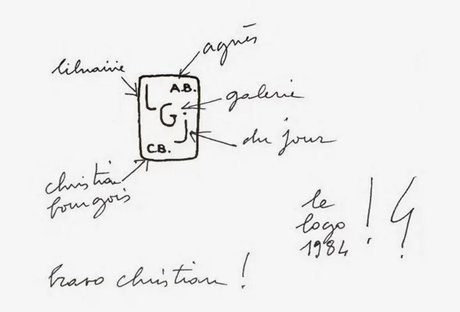 agnès
librairie
A.B.
L
galerie
G.
j
du jour
C.B.
christian
bourgois
le
logo
1984
!
bravo christian !